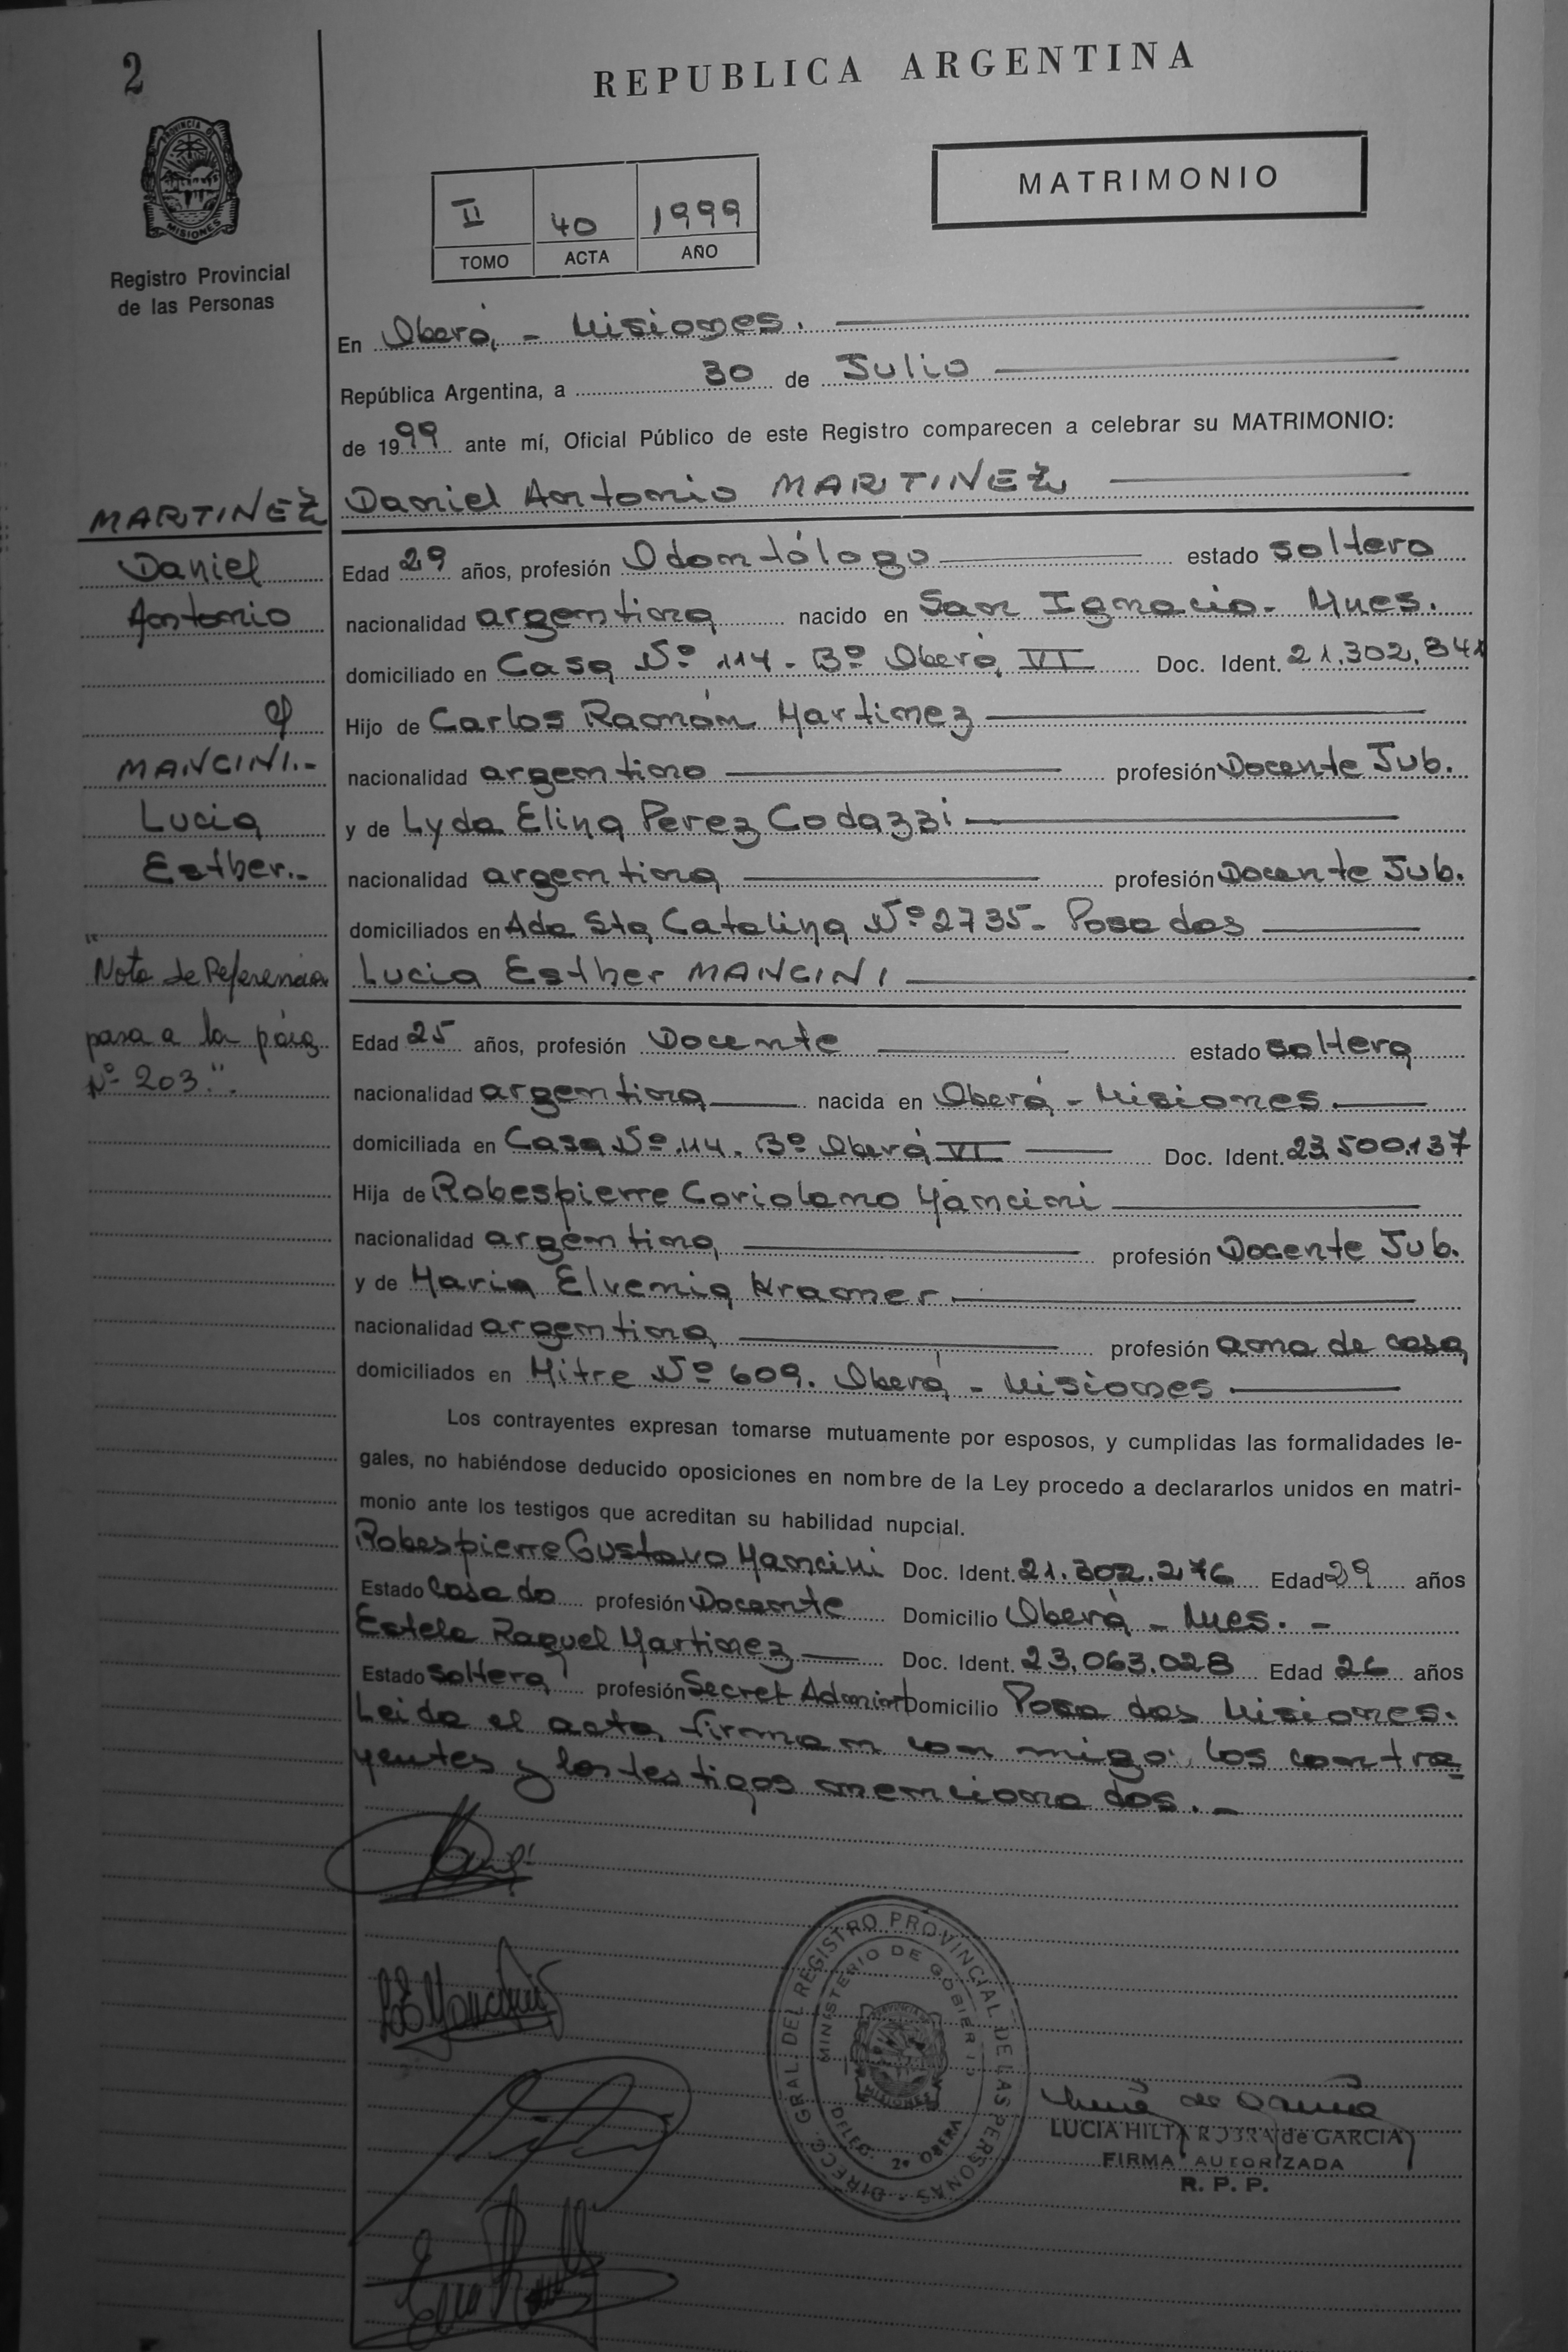 2
REPUBLICA ARGENTINA
PROVINCIA DE
MISIONES
Registro Provincial
de las Personas
II 40 1999
TOMO ACTA AÑO
MATRIMONIO
En Oberá, - Misiones.
República Argentina, a 30 de Julio
de 1999 ante mí, Oficial Público de este Registro comparecen a celebrar su MATRIMONIO:
Daniel Antonio MARTINEZ
Edad 29 años, profesión Odontólogo estado soltero
nacionalidad argentina nacido en San Ignacio - Mnes.
domiciliado en Casa Nº 114 - Bº Oberá VI Doc. Ident. 21.302.841
Hijo de Carlos Ramón Martinez
nacionalidad argentino profesión Docente Jub.
y de Lyda Elina Perez Codazzi
nacionalidad argentina profesión Docente Jub.
domiciliados en Ada Sta Catalina Nº 2735 - Posadas
Lucia Esther MANCINI
Edad 25 años, profesión Docente estado soltera
nacionalidad argentina nacida en Oberá - Misiones
domiciliada en Casa Nº 114. Bº Oberá VI Doc. Ident. 23.500.137
Hija de Robespierre Coriolano Mancini
nacionalidad argentina profesión Docente Jub.
y de Maria Elvenia Kramer
nacionalidad argentina profesión ama de casa
domiciliados en Mitre Nº 609. Oberá - Misiones
Los contrayentes expresan tomarse mutuamente por esposos, y cumplidas las formalidades le-
gales, no habiéndose deducido oposiciones en nombre de la Ley procedo a declararlos unidos en matri-
monio ante los testigos que acreditan su habilidad nupcial.
Robespierre Gustavo Mancini Doc. Ident. 21.302.276 Edad 29 años
Estado Casado profesión Docente Domicilio Oberá - Mnes. -
Estela Raquel Martinez Doc. Ident. 23.063.028 Edad 26 años
Estado Soltera profesión Secret Administ Domicilio Posadas Misiones.
Leida el acta, firman con migo: los contra
yentes y los testigos mencionados. -
MARTINEZ
Daniel
Antonio
y
MANCINI.-
Lucia
Esther.-
"Nota de Referencia
pasa a la pág
Nº 203".
DIRECC. GRAL. DEL REGISTRO PROVINCIAL DE LAS PERSONAS
MINISTERIO DE GOBIERNO
DELEG. 2º OBERA
MISIONES
LUCIA HILDA de GARCIA
FIRMA AUTORIZADA
R. P. P.